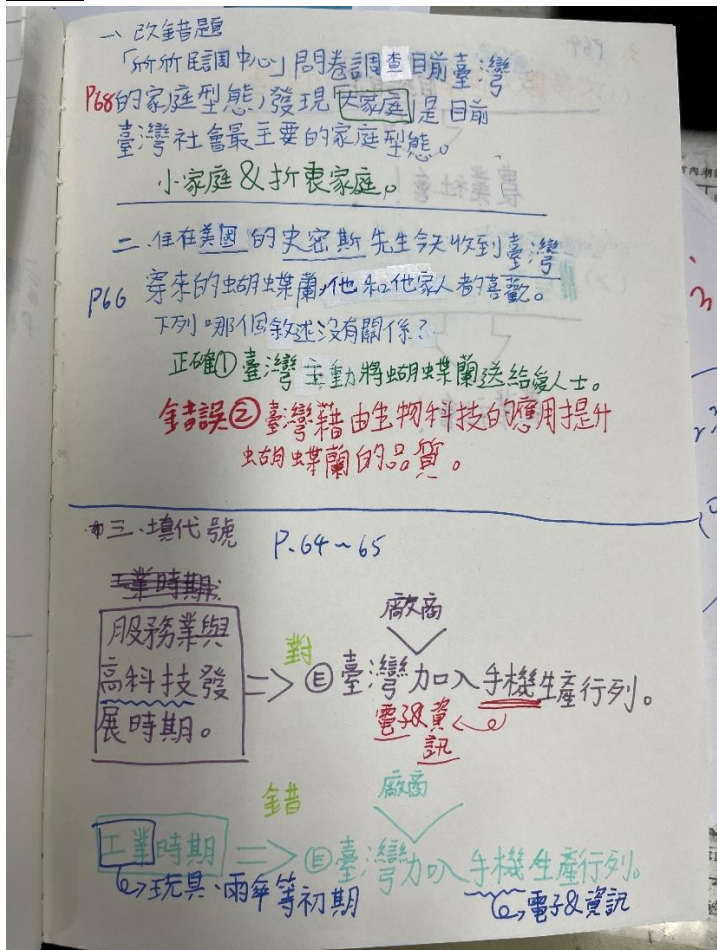 一、改錯題
「所所民調中心」問卷調查目前臺灣
P68的家庭型態,發現大家庭是目前
臺灣社會最主要的家庭型態。
小家庭&折衷家庭。
二、住在美國的史密斯先生今天收到臺灣
P66 寄來的蝴蝶蘭,他和他家人都喜歡。
下列哪個敘述沒有關係?
正確①臺灣主動將蝴蝶蘭送給愛人士。
錯誤②臺灣藉由生物科技的應用提升
蝴蝶蘭的品質。
三、填代號 P.64~65
工業時期
服務業與
高科技發
展時期。
對
廠商
Ⓔ臺灣加入手機生產行列。
電子&資
訊
錯
廠商
工業時期
Ⓔ臺灣加入手機生產行列。
玩具、雨傘等初期
電子&資訊